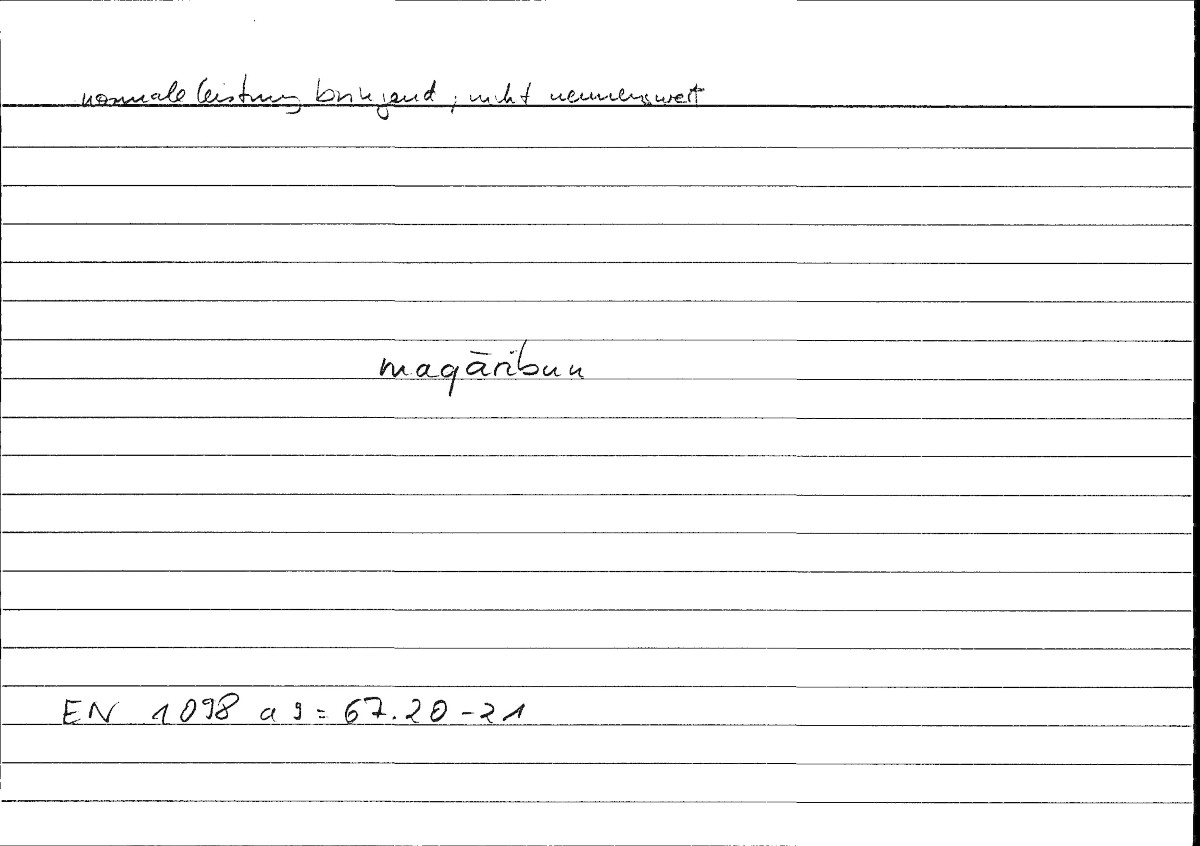 normale leistung bringend, nicht nennenswert
maqāribun
EN 1098 a 9 = 67.20-21